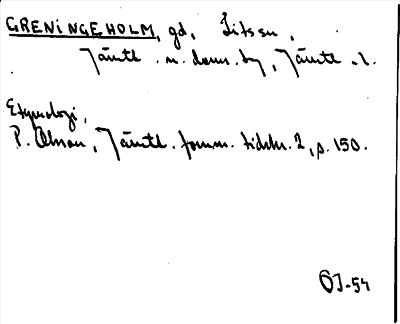 GRENINGEHOLM, gd, Litssn,
Jämtl. n. doms. by, Jämtl. l.
Etymologi,
P. Olsson, Jämtl. fornm. tidskr. 2, s. 150.
OJ-54